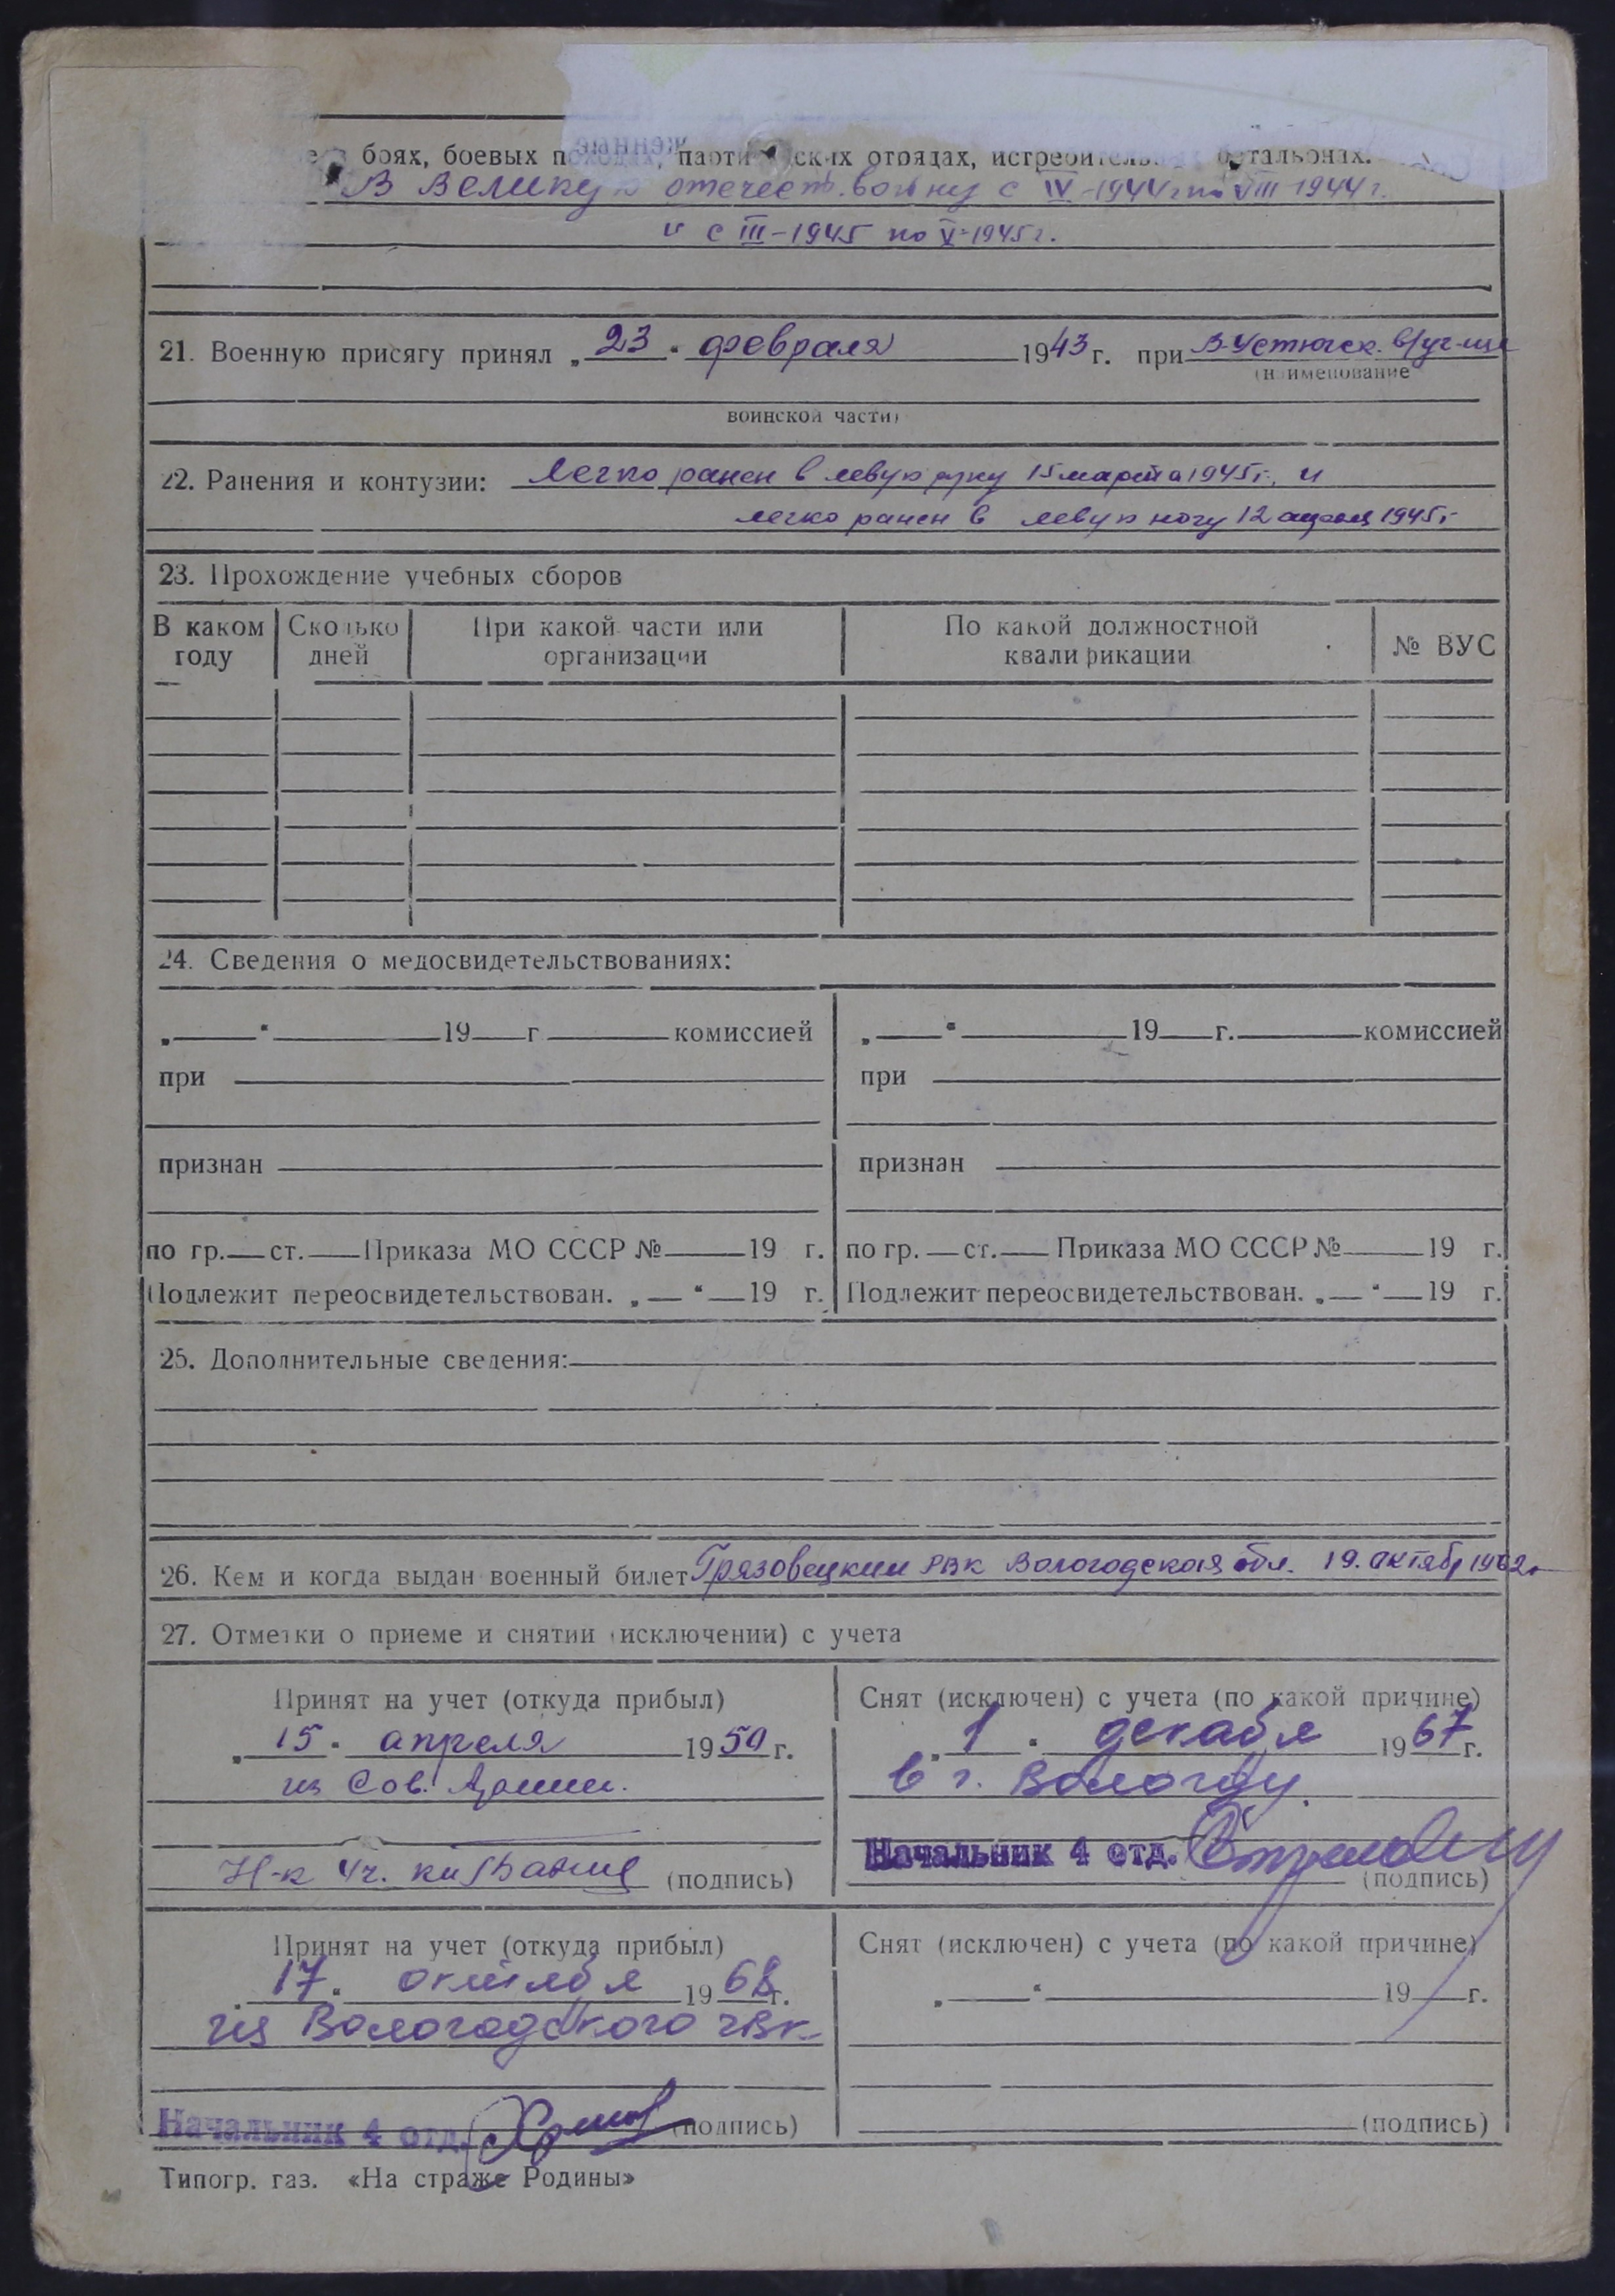 боях, боевых походах, партизанских отрядах, истребительных батальонах.
В Великую отечеств. войну с IV-1944г по VIII 1944г.
и с III-1945 по V-1945г.
21. Военную присягу принял „23“ февраля 1943 г. при В-Устюгск. в/уч-ще
(наименование
воинской части)
22. Ранения и контузии: Легко ранен в левую руку 15 марта 1945г., и
легко ранен в левую ногу 12 апреля 1945г
23. Прохождение учебных сборов
В каком году Сколько дней При какой части или организации По какой должностной квалификации № ВУС
24. Сведения о медосвидетельствованиях:
„ “ 19 г комиссией „ “ 19 г. комиссией
при при
признан признан
по гр. ст. Приказа МО СССР № 19 г. по гр. ст. Приказа МО СССР № 19 г.
Подлежит переосвидетельствован. „ “ 19 г. Подлежит переосвидетельствован. „ “ 19 г.
25. Дополнительные сведения:
26. Кем и когда выдан военный билет Грязовецкий РВК Вологодская обл. 19. октябр 1962г
27. Отметки о приеме и снятии (исключении) с учета
Принят на учет (откуда прибыл) Снят (исключен) с учета (по какой причине)
„15“ апреля 1950 г. „1“ декабря 1967 г.
из Сов. Армии. в г. Вологду.
Н-к 4ч. (подпись) Начальник 4 отд. (подпись)
Принят на учет (откуда прибыл) Снят (исключен) с учета (по какой причине)
„17“ октября 1968 г. „ “ 19 г.
из Вологодского ГВК
Начальник 4 отд. (подпись) (подпись)
Типогр. газ. «На страже Родины»